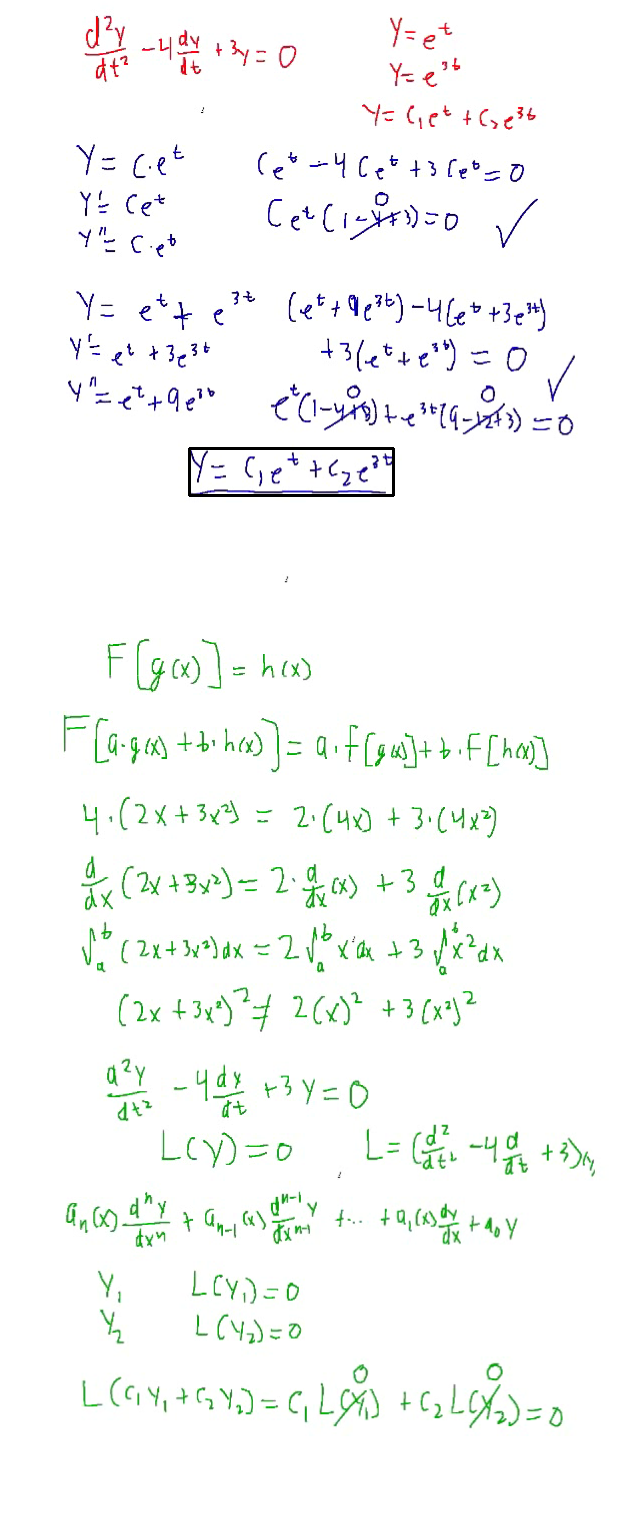 d²y/dt² - 4 dy/dt + 3y = 0
y = e^t
y = e^3t
y = C₁e^t + C₂e^3t
y = C·e^t
y' = Ce^t
y'' = C·e^t
Ce^t - 4Ce^t + 3Ce^t = 0
Ce^t(1-4+3) = 0 ✓
0
y = e^t + e^3t
y' = e^t + 3e^3t
y'' = e^t + 9e^3t
(e^t + 9e^3t) - 4(e^t + 3e^3t)
+3(e^t + e^3t) = 0 ✓
0 0
e^t(1-4+3) + e^3t(9-12+3) = 0
y = C₁e^t + C₂e^3t
F[g(x)] = h(x)
F[a·g(x) + b·h(x)] = a·f[g(x)] + b·F[h(x)]
4·(2x + 3x²) = 2·(4x) + 3·(4x²)
d/dx (2x + 3x²) = 2·d/dx (x) + 3 d/dx (x²)
∫_a^b (2x + 3x²)dx = 2∫_a^b x dx + 3∫_a^b x² dx
(2x + 3x²)² ≠ 2(x)² + 3(x²)²
d²y/dt² - 4 dy/dt + 3y = 0
L(y) = 0 L = (d²/dt² - 4 d/dt + 3)
aₙ(x) dⁿy/dxⁿ + aₙ₋₁(x) dⁿ⁻¹y/dxⁿ⁻¹ + ... + a₁(x) dy/dx + a₀y
y₁ L(y₁) = 0
y₂ L(y₂) = 0
0 0
L(c₁y₁ + c₂y₂) = c₁L(y₁) + c₂L(y₂) = 0